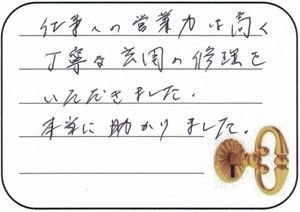 仕事人の営業力は高く
丁寧な玄関の修理を
いただきました.
本当に助かりました.